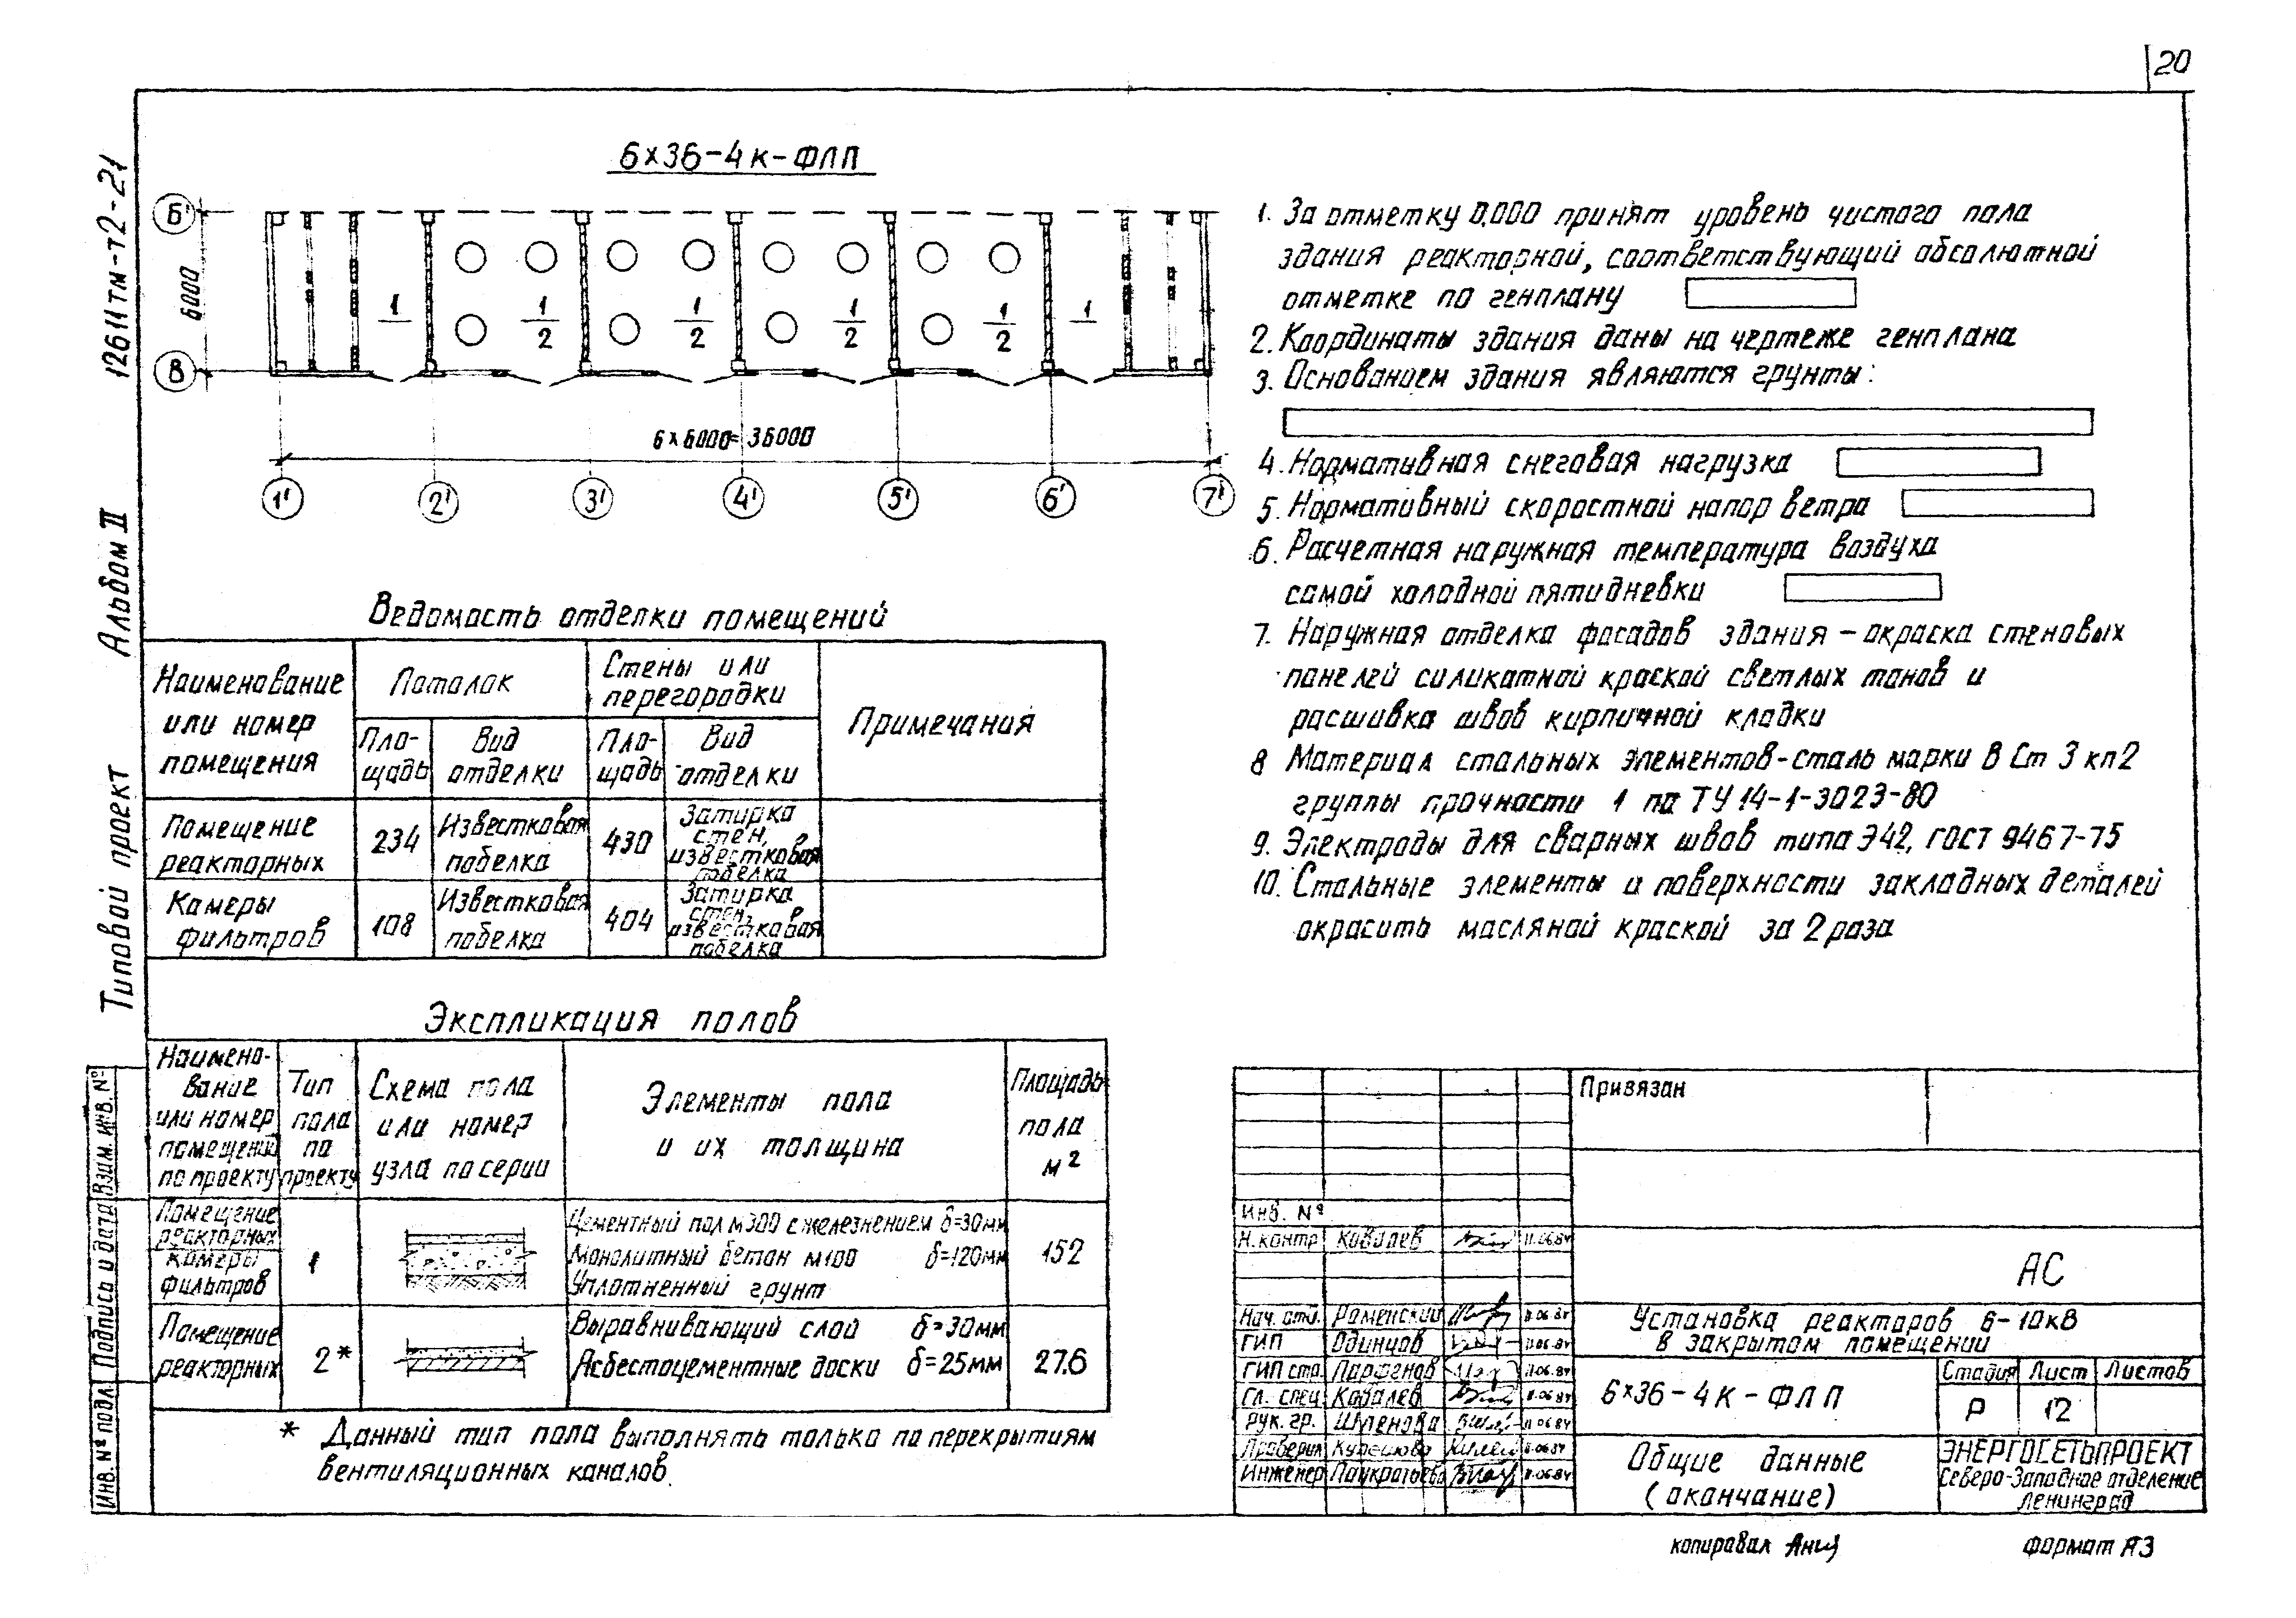 20
12611тм-т2-21
Альбом II
Типовой проект
6×36-4к-ФЛП
Б'
В
6000
1
1
2
1
2
1
2
1
2
1
6×6000=36000
1'
2'
3'
4'
5'
6'
7'
1. За отметку 0,000 принят уровень чистого пола
здания реакторной, соответствующий абсолютной
отметке по генплану
2. Координаты здания даны на чертеже генплана
3. Основанием здания являются грунты:
4. Нормативная снеговая нагрузка
5. Нормативный скоростной напор ветра
6. Расчетная наружная температура воздуха
самой холодной пятидневки
7. Наружная отделка фасадов здания - окраска стеновых
панелей силикатной краской светлых тонов и
расшивка швов кирпичной кладки
8 Материал стальных элементов-сталь марки В Ст 3 кп2
группы прочности 1 по ТУ 14-1-3023-80
9. Электроды для сварных швов типа Э42, ГОСТ 9467-75
10. Стальные элементы и поверхности закладных деталей
окрасить масляной краской за 2 раза
Ведомость отделки помещений
Наименование или номер помещения
Потолок
Стены или перегородки
Примечания
Пло-щадь
Вид отделки
Пло-щадь
Вид отделки
Помещение реакторных
234
Известковая побелка
430
Затирка стен, известковая побелка
Камеры фильтров
108
Известковая побелка
404
Затирка стен, известковая побелка
Экспликация полов
Наимено-вание или номер помещений по проекту
Тип пола по проекту
Схема пола или номер узла по серии
Элементы пола и их толщина
Площадь пола м²
Помещение реакторных
камеры фильтров
1
Цементный пол М300 с железнением δ=30мм
Монолитный бетон М100 δ=120мм
Уплотненный грунт
152
Помещение реакторных
2*
Выравнивающий слой δ=30мм
Асбестоцементные доски δ=25мм
27.6
* Данный тип пола выполнять только по перекрытиям
вентиляционных каналов.
Взам. инв. №
Подпись и дата
Инв. № подл.
Привязан
Инв. №
Н.контр Ковалев 11.06.84
Нач. отд. Роменский 11.06.84
ГИП Одинцов 11.06.84
ГИП стр. Парфенов 11.06.84
Гл. спец Ковалев 11.06.84
Рук. гр. Шленова 11.06.84
Проверил 11.06.84
Инженер 11.06.84
АС
Установка реакторов 6-10кВ
в закрытом помещении
6×36-4к-ФЛП
Стадия Лист Листов
Р 12
Общие данные
(окончание)
ЭНЕРГОСЕТЬПРОЕКТ
Северо-Западное отделение
Ленинград
копировал
Формат А3